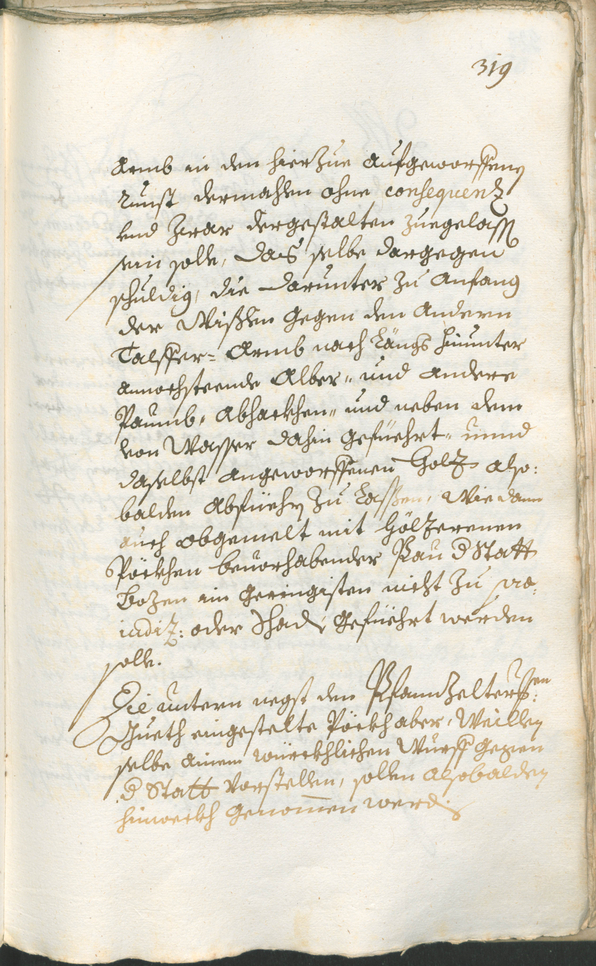 319
Armb in den hierzue aufgeworffenen
Runst dermahlen ohne consequenz
und zwar dergestalten zuegelassen
sein solle, das selbe dargegen
schuldig, die darunter zu Anfang
der Wißen gegen den andern
Talffer= Armb nach Längs hinunter
annochsteende Alber- und andere
Paumb, abhackhen- und neben dem
von Wasser dahin gefüehrt- unnd
daselbst angeworffenen Holz also:
balden abfüehrn zu lassen, wie dann
auch obgemelt mit hölzerenen
Pöckhen bevorhabender Pau d Statt
Bozen im geringisten nicht zu prae:
iudiz: oder Schadn gefüehrt werden
solle.
Die untern negst den Pfanzelterischen
Gueth eingestelte Pöckh aber, weillen
selbe ainem würckhlichen Wurff gegen
d Statt vorstellen, sollen alsobalden
hinweckh genommen werdn